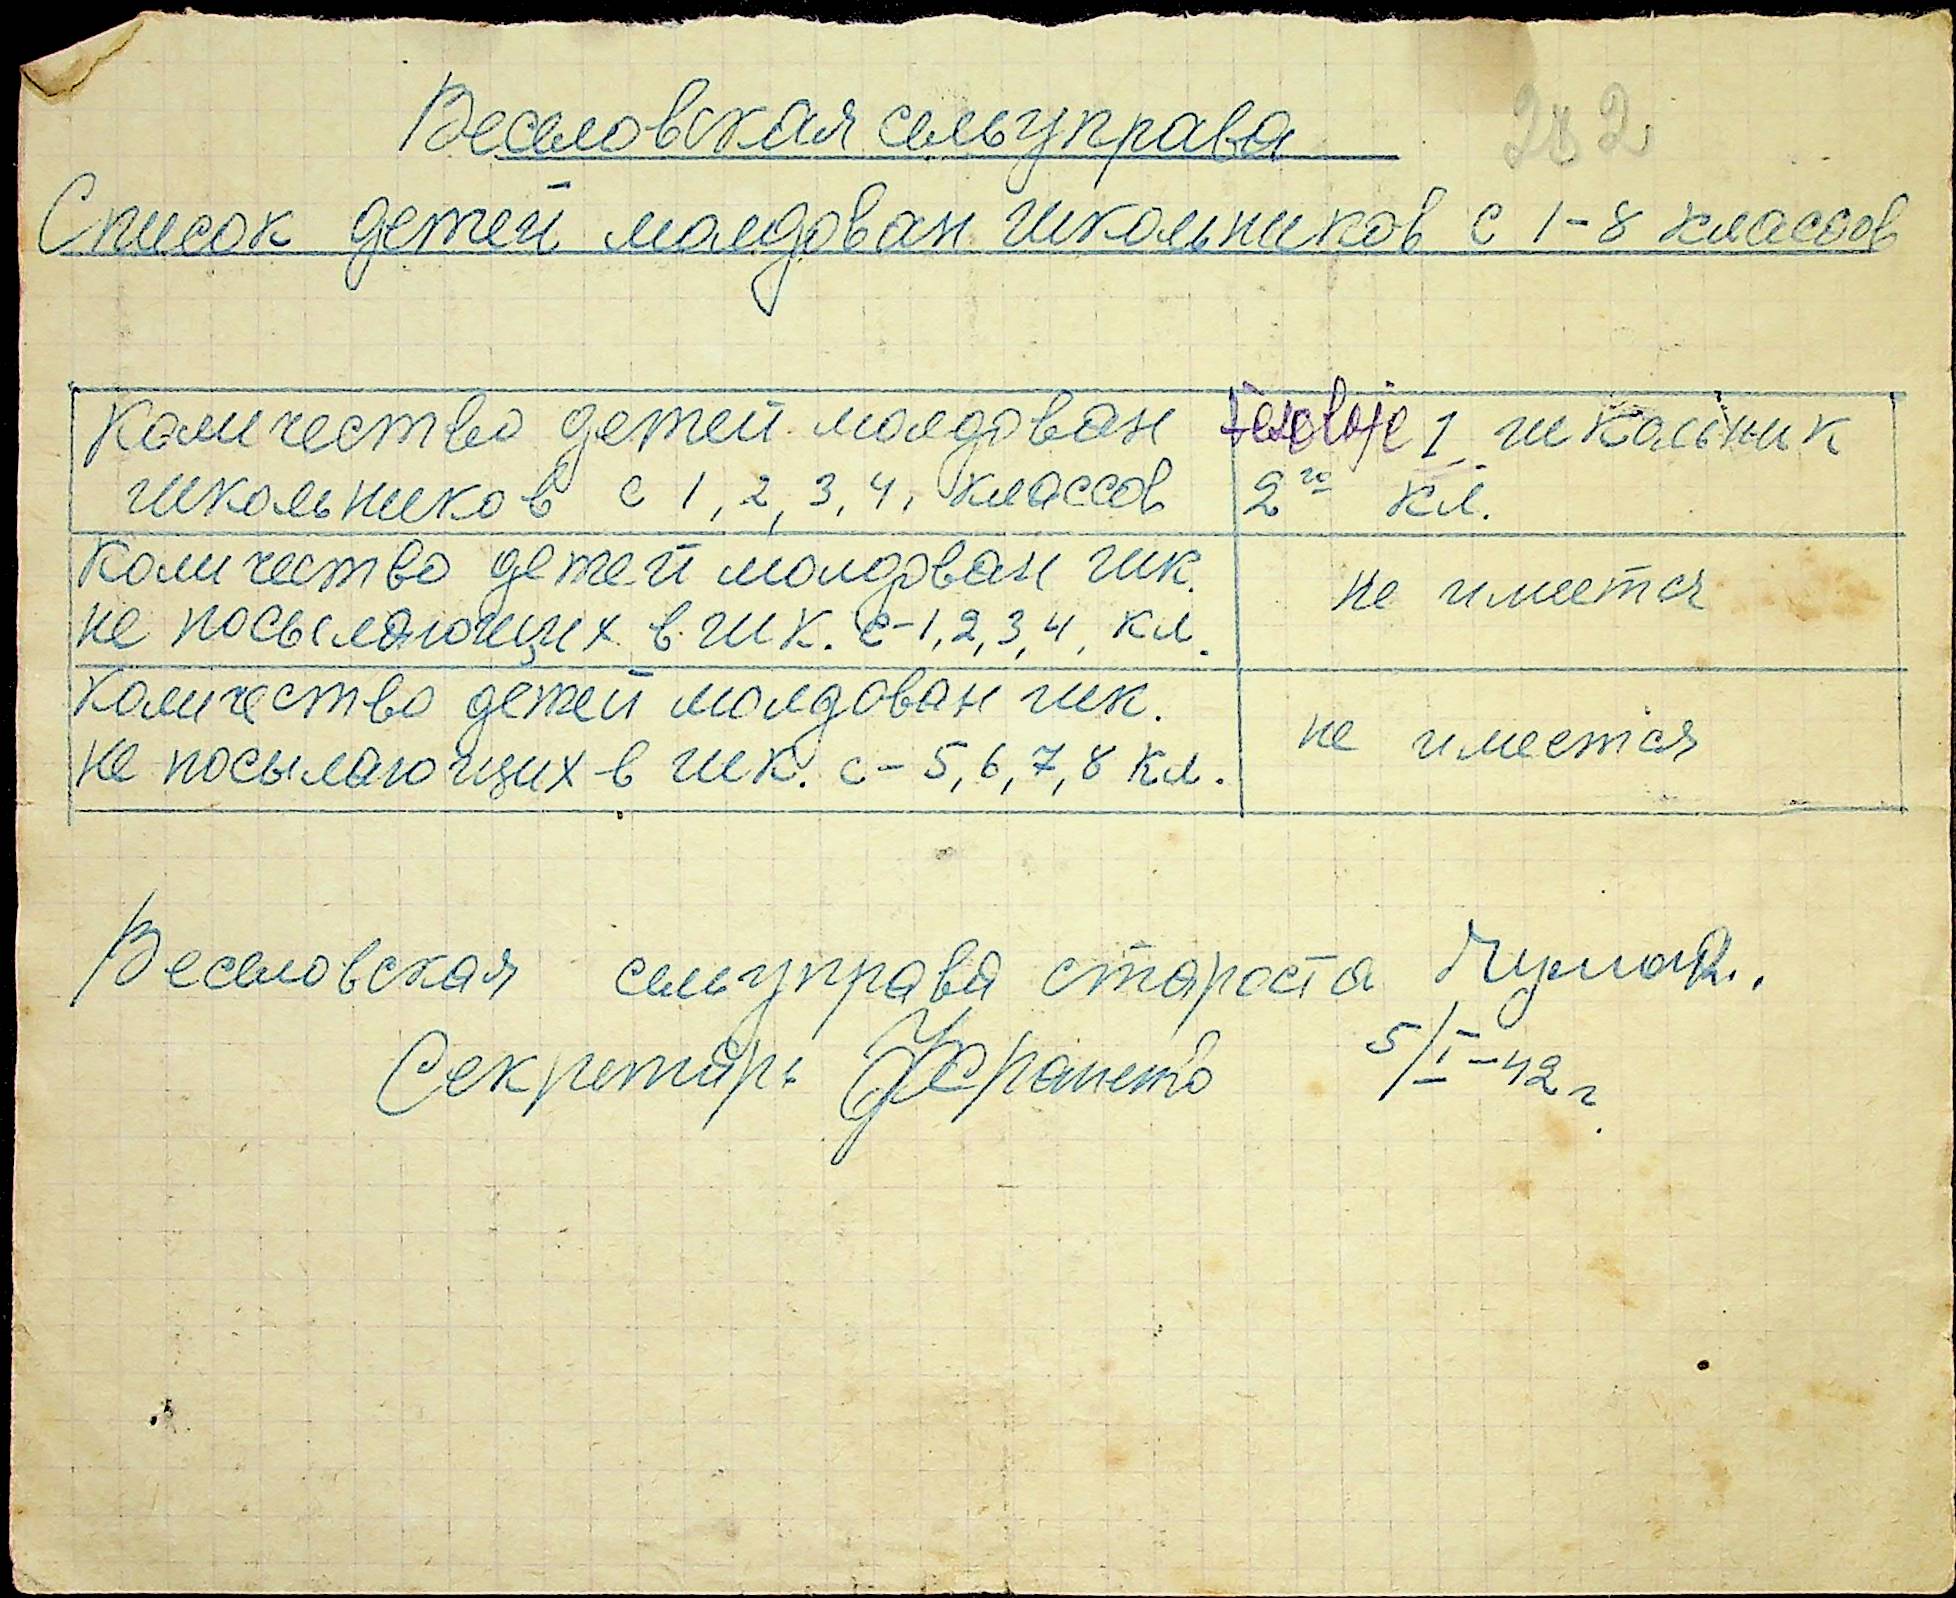 Веселовская сельуправа 282
Список детей молдован школьников с 1-8 классов
Количество детей молдован
школьников с 1, 2, 3, 4, классов
1 школьник
2го кл.
Количество детей молдован шк.
не посылающих в шк. с-1,2,3,4, кл.
не имеется
Количество детей молдован шк.
не посылающих в шк. с-5,6,7,8 кл.
не имеется
Веселовская сельуправа староста Чумак.
Секретарь
5/I-42г.